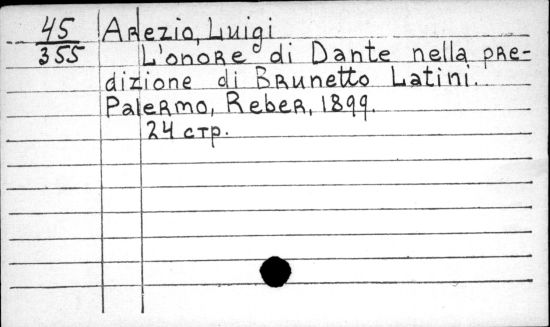 45 Arezio, Luigi
355 L'onore di Dante nella pre-
dizione di Brunetto Latini.
Palermo, Reber, 1899.
24 стр.